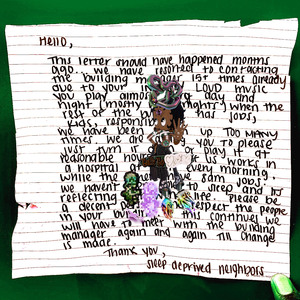 Hello,
This letter should have happened months
ago.. we have resorted to contacting
the building 15+ times already
due to your LOUD music
you play almost day and
night (mostly night) when the
rest of the has jobs,
kids,
we have been up TOO MANY
times. we are you to please
just turn it or play it at
reasonable us works in
a hospital every morning,
while the have 5am jobs.
we haven't to sleep and its
reflecting life. please be
a decent respect the people
in your this continues we
will have to meet with the building
manager again and again till change
is made.
Thank you,
sleep deprived neighbors